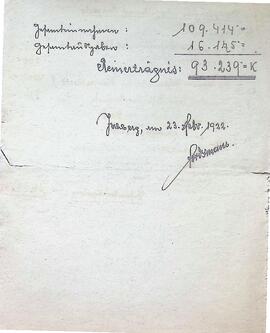 Gesamteinnahmen : 109.414=
Gesamtausgaben : 16.175=
Reinerträgnis: 93.239=K
am 23. Febr. 1922.